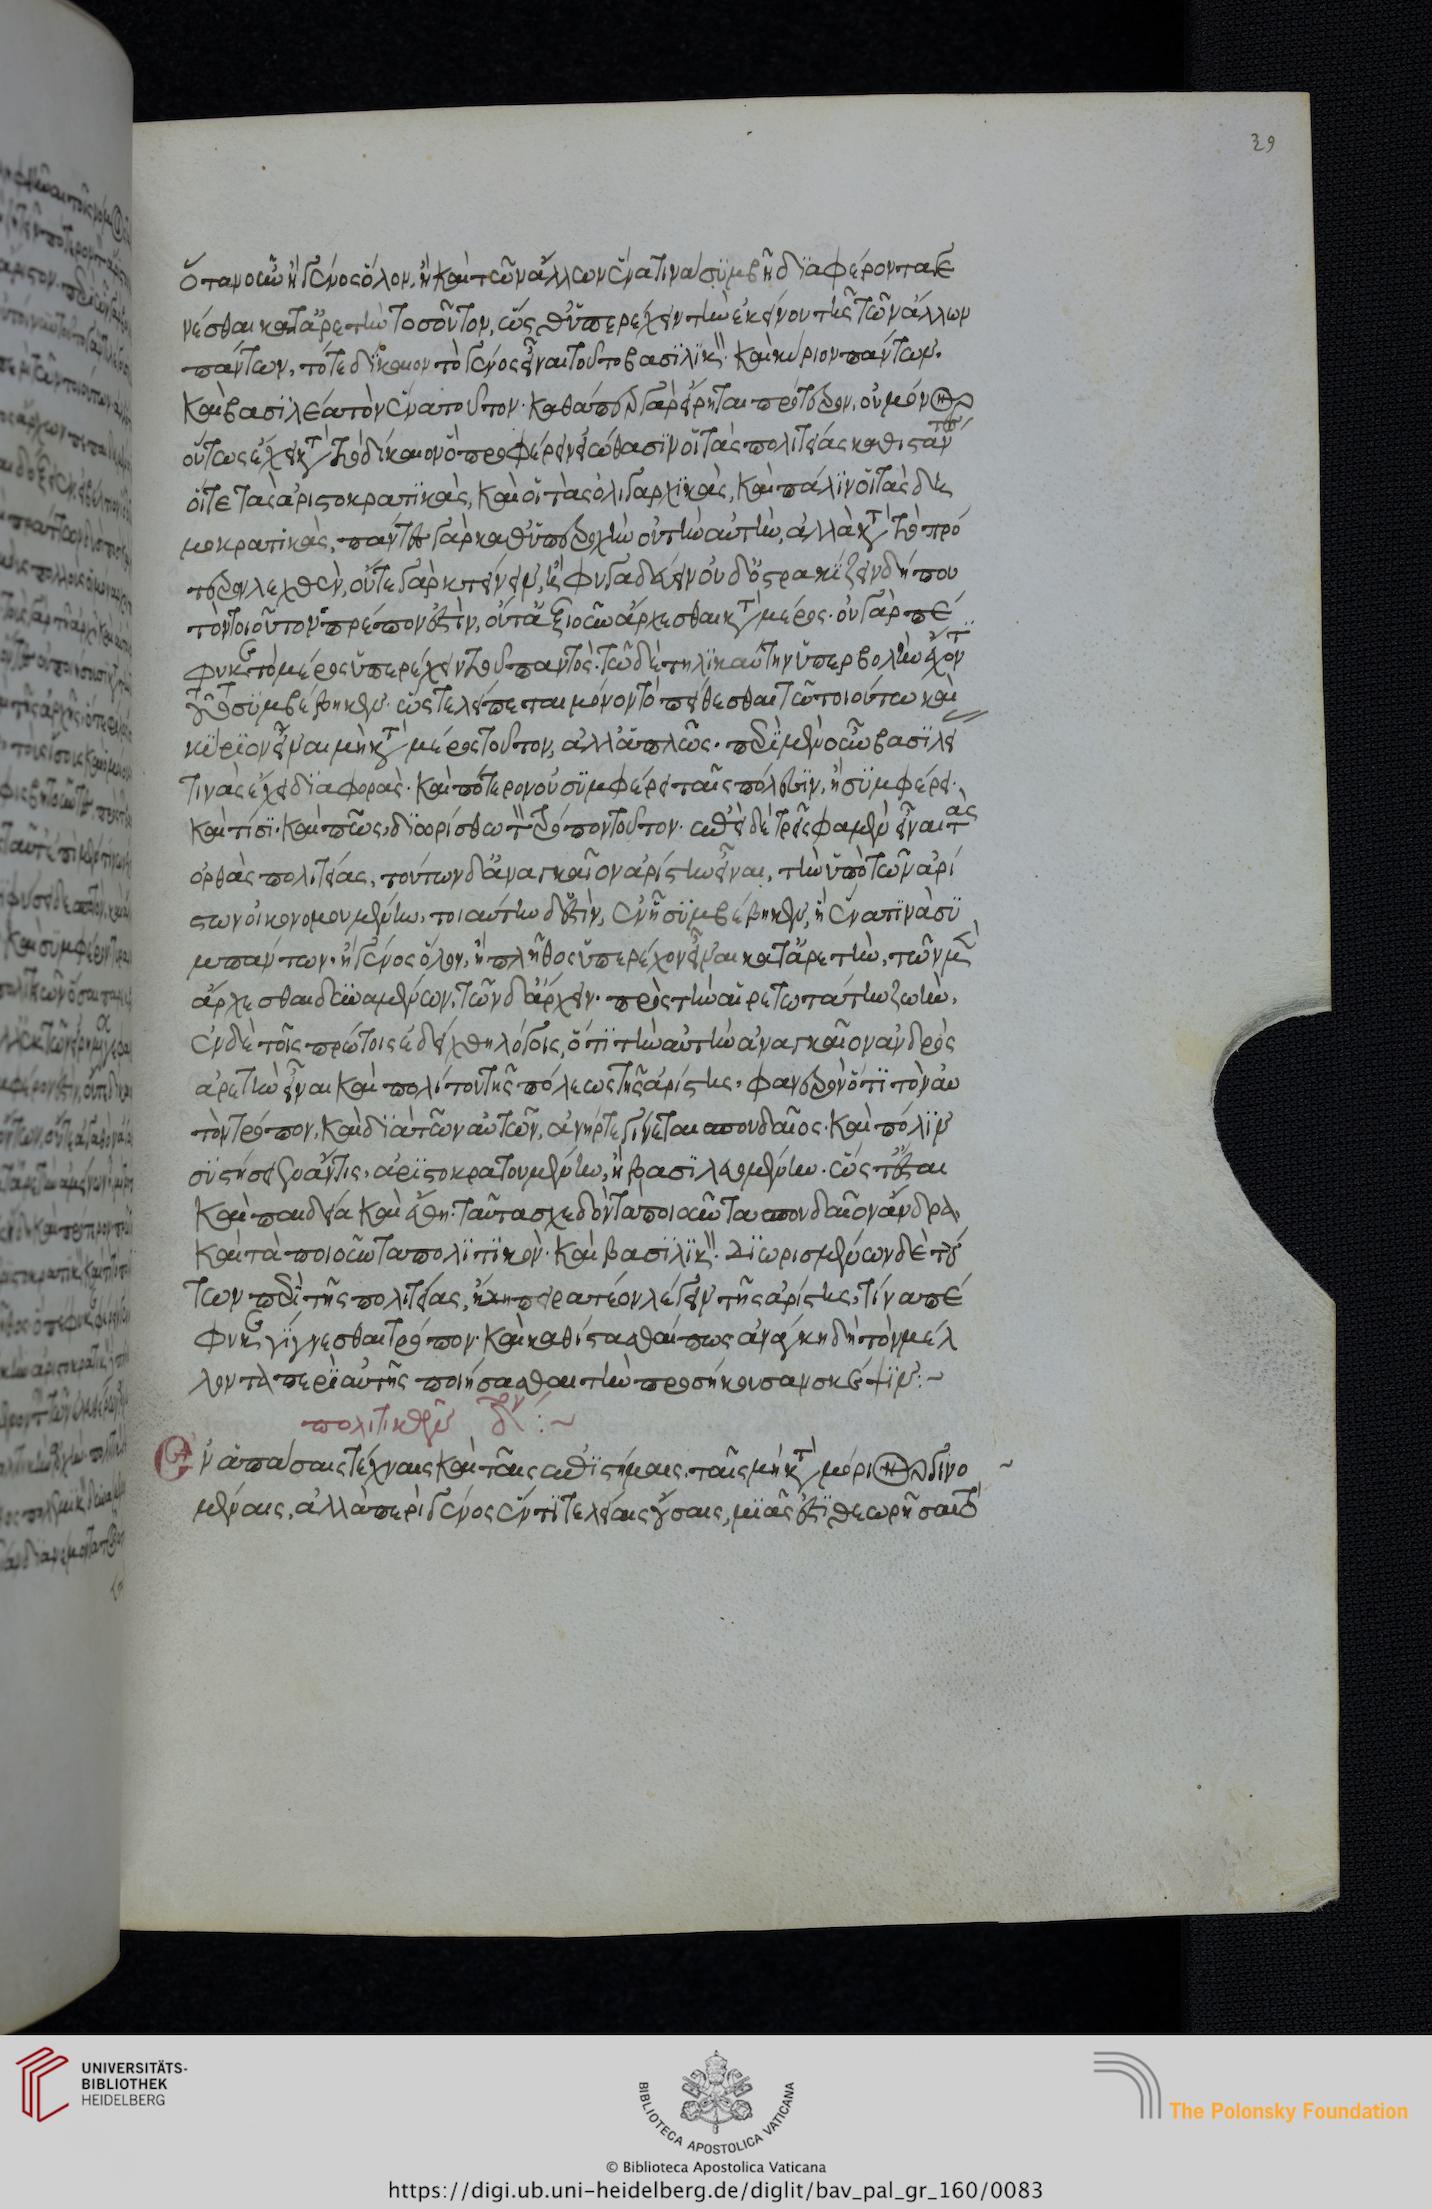 39
ὅταν οὖν ἢ γένος ὅλον, ἢ καὶ τῶν ἄλλων ἕνα τινα συμβῇ διαφέροντα γε
νέσθαι κατ' ἀρετὴν τοσοῦτον, ὥσθ' ὑπερέχειν τὴν ἐκείνου τῆς τῶν ἄλλων
πάντων, τότε δίκαιον τὸ γένος εἶναι τοῦτο βασιλικὸν καὶ κύριον πάντων.
καὶ βασιλέα τὸν ἕνα τοῦτον. καθάπερ γὰρ εἴρηται πρότερον, οὐ μόνον
οὕτως ἔχει κατὰ τὸ δίκαιον ὃ προφέρειν εἰώθασιν οἱ τὰς πολιτείας καθιστάντες
οἵ τε τὰς ἀριστοκρατικὰς, καὶ οἱ τὰς ὀλιγαρχικὰς, καὶ πάλιν οἱ τὰς δη
μοκρατικὰς, πάντῃ γὰρ καθ' ὑπεροχὴν οὐ τὴν αὐτὴν, ἀλλὰ κατὰ τὸ πρό
τερον λεχθὲν, οὔτε γὰρ κτείνειν, ἢ φυγαδεύειν οὐδ' ὀστρακίζειν δήπου
τὸν τοιοῦτον πρέπον ἐστὶν, οὔτ' ἀξιοῦν ἄρχεσθαι κατὰ μέρος. οὐ γὰρ πέ
φυκε τὸ μέρος ὑπερέχειν τοῦ παντός. τῷ δὲ τηλικαύτην ὑπερβολὴν ἔχοντι
τοῦτο συμβέβηκεν. ὥστε λείπεται μόνον τὸ πείθεσθαι τῷ τοιούτῳ καὶ
κύριον εἶναι μὴ κατὰ μέρος τοῦτον, ἀλλ' ἁπλῶς. περὶ μὲν οὖν βασιλεί
τίνας ἔχει διαφορὰς. καὶ πότερον οὐ συμφέρει ταῖς πόλεσιν, ἢ συμφέρει.
καὶ τίσι. καὶ πῶς, διωρίσθω τὸν τρόπον τοῦτον. ἐπεὶ δὲ τρεῖς φαμὲν εἶναι τὰς
ὀρθὰς πολιτείας, τούτων δ' ἀναγκαῖον ἀρίστην εἶναι, τὴν ὑπὸ τῶν ἀρί
στων οἰκονομουμένην, τοιαύτη δ' ἐστὶν, ἐν ᾗ συμβέβηκεν, ἢ ἕνα τινὰ συ
μπάντων. ἢ γένος ὅλον, ἢ πλῆθος ὑπερέχον εἶναι κατ' ἀρετὴν, τῶν μὲν
ἄρχεσθαι δυναμένων, τῶν δ' ἄρχειν. πρὸς τὴν αἱρετωτάτην ζωὴν,
ἐν δὲ τοῖς πρώτοις ἐδείχθη λόγοις, ὅτι τὴν αὐτὴν ἀναγκαῖον ἀνδρὸς
ἀρετὴν εἶναι καὶ πολίτου τῆς πόλεως τῆς ἀρίστης. φανερὸν ὅτι τὸν αὐ
τὸν τρόπον, καὶ διὰ τῶν αὐτῶν, ἀνήρ τε γίνεται σπουδαῖος. καὶ πόλιν
συστήσειεν ἄν τις, ἀριστοκρατουμένην, ἢ βασιλευομένην. ὥστ' ἔσται
καὶ παιδεία καὶ ἔθη. ταῦτα σχεδὸν τὰ ποιοῦντα σπουδαῖον ἄνδρα,
καὶ τὰ ποιοῦντα πολιτικὸν. καὶ βασιλικὸν. Διωρισμένων δὲ τού
των περὶ τῆς πολιτείας, ἤδη πειρατέον λέγειν τῆς ἀρίστης, τίνα πέ
φυκε γίγνεσθαι τρόπον. καὶ καθίστασθαί πως ἀνάγκη δὴ τὸν μέλ
λοντα περὶ αὐτῆς ποιήσασθαι τὴν προσήκουσαν σκέψιν:~
πολιτικῶν δον:~
Ἐν ἁπάσαις τέχναις καὶ ταῖς ἐπιστήμαις, ταῖς μὴ κατὰ μόριον γινο
μέναις, ἀλλὰ περὶ γένος ἕν τι τελείαις οὔσαις, μιᾶς ἐστὶ θεωρῆσαι τὸ
UNIVERSITÄTS-
BIBLIOTHEK
HEIDELBERG
BIBLIOTECA APOSTOLICA VATICANA
© Biblioteca Apostolica Vaticana
The Polonsky Foundation
https://digi.ub.uni-heidelberg.de/diglit/bav_pal_gr_160/0083